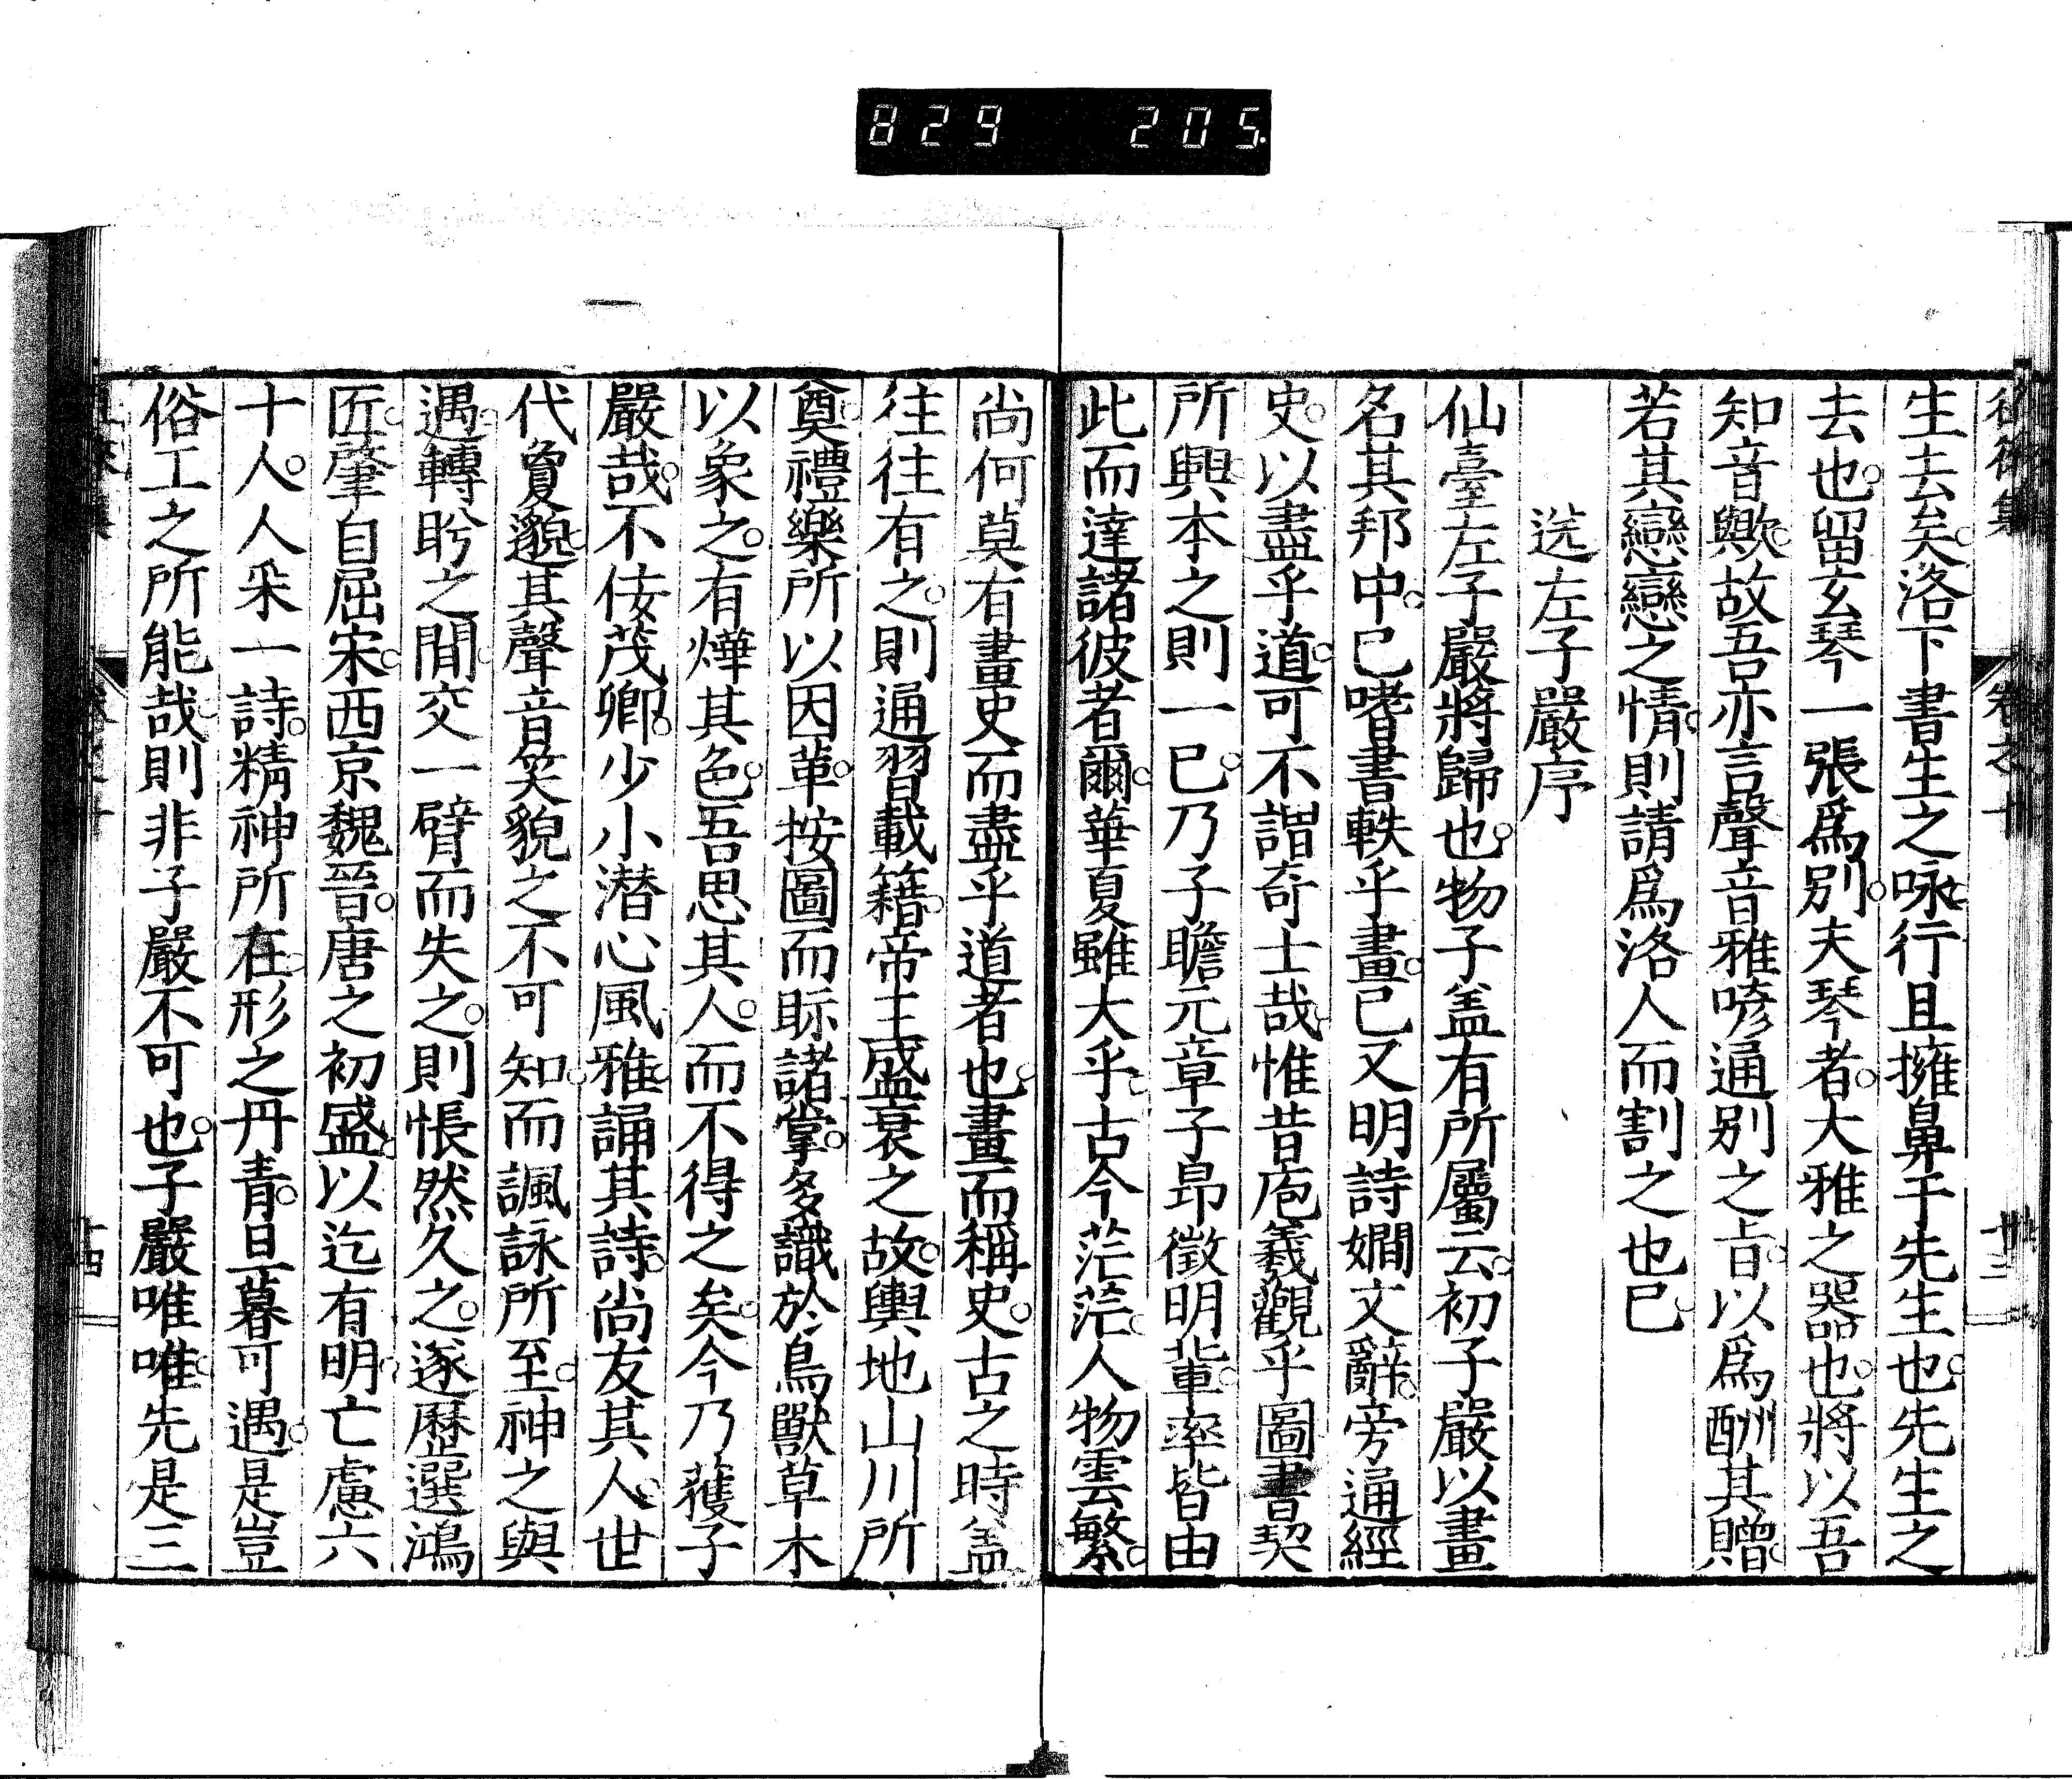 829 205.
徂徠集 卷之十 十三
生去矣洛下書生之咏行且擁鼻于先生也先生之
去也留玄琴一張爲別夫琴者大雅之器也將以吾
知音歟故吾亦言聲音雅喭通別之旨以爲酬其贈
若其戀戀之情則請爲洛人而割之也已
送左子嚴序
仙臺左子嚴將歸也物子盖有所屬云初子嚴以畫
名其邦中已嗜書軼乎畫已又明詩嫺文辭旁通經
史以盡乎道可不謂奇士哉惟昔庖羲觀乎圖書契
所興本之則一已乃子瞻元章子昂徵明輩率皆由
此而達諸彼者爾華夏雖大乎古今茫茫人物雲繁
尚何莫有畫史而盡乎道者也畫而稱史古之時盖
往往有之則通習載籍帝王盛衰之故輿地山川所
奠禮樂所以因革按圖而眎諸掌多識於鳥獸草木
以象之有燁其色吾思其人而不得之矣今乃獲子
嚴哉不佞茂卿少小潛心風雅誦其詩尚友其人世
代敻邈其聲音笑貌之不可知而諷詠所至神之與
遇轉盻之間交一臂而失之則悵然久之遂歷選鴻
匠肇自屈宋西京魏晉唐之初盛以迄有明亡慮六
十人人采一詩精神所在形之丹青旦暮可遇是豈
俗工之所能哉則非子嚴不可也子嚴唯唯先是三